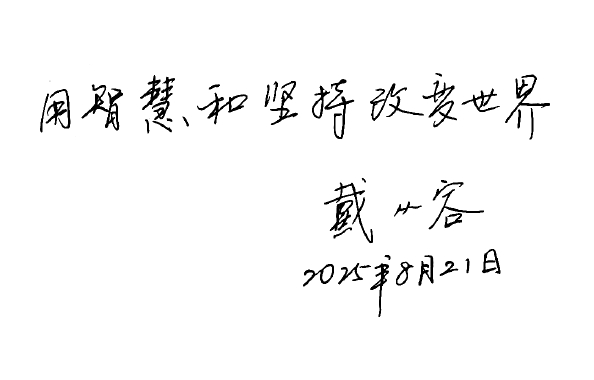 用智慧和坚持改变世界
戴从容
2025年8月21日